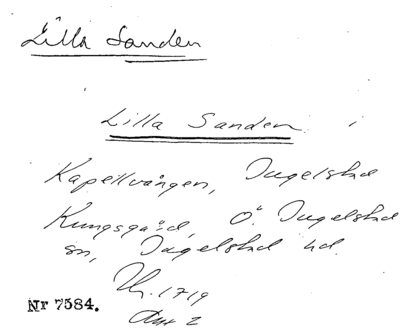 Lilla Sanden
Lilla Sanden
Kapellvången, Ingelstad
Kungsgård, Ö. Ingelstad
sn, Ingelstad hd.
1719
Nr 7584.
Akt 2